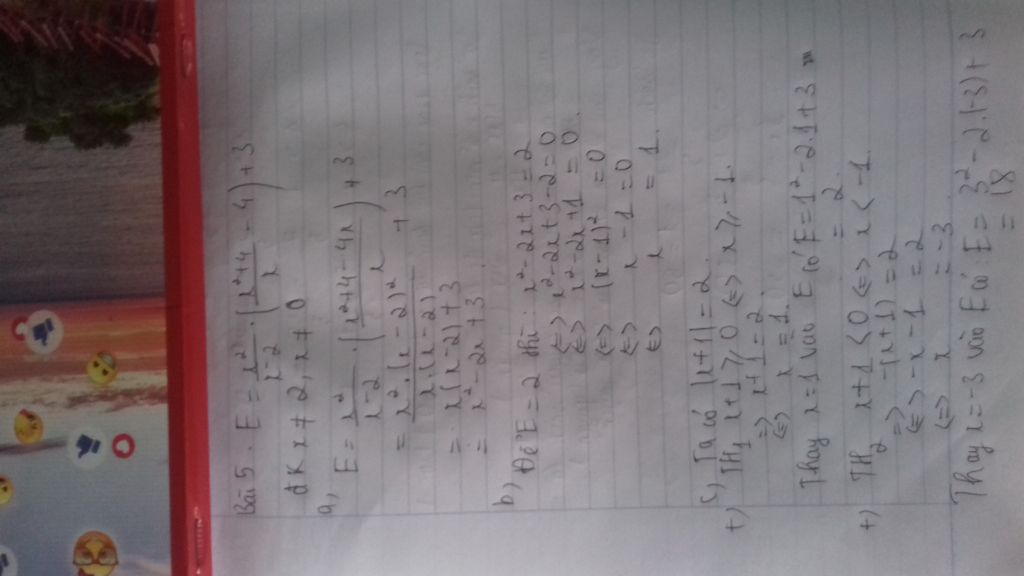 Bài 5. E = x²/(x-2) . (x²+4/x - 4) + 3
đK x ≠ 2, x ≠ 0
a) E = x²/(x-2) . (x²+4-4x/x) + 3
= x².(x-2)²/x.(x-2) + 3
= x(x-2)+3
= x²-2x+3.
b) Để E = 2 thì: x²-2x+3=2
<=> x²-2x+3-2=0
<=> x²-2x+1=0.
<=> (x-1)²=0
<=> x-1=0
<=> x = 1.
c) Ta có |x+1|=2.
+) TH₁ x+1 ⩾ 0 <=> x ⩾ -1.
=> x+1=2
<=> x=1.
Thay x=1 vào E có E=1²-2.1+3
= 2.
+) TH₂ x+1<0 <=> x<-1.
=> -(x+1)=2
<=> -x-1=2
<=> x=-3
Thay x=-3 vào E có E= 3²-2.(-3)+3
= 18